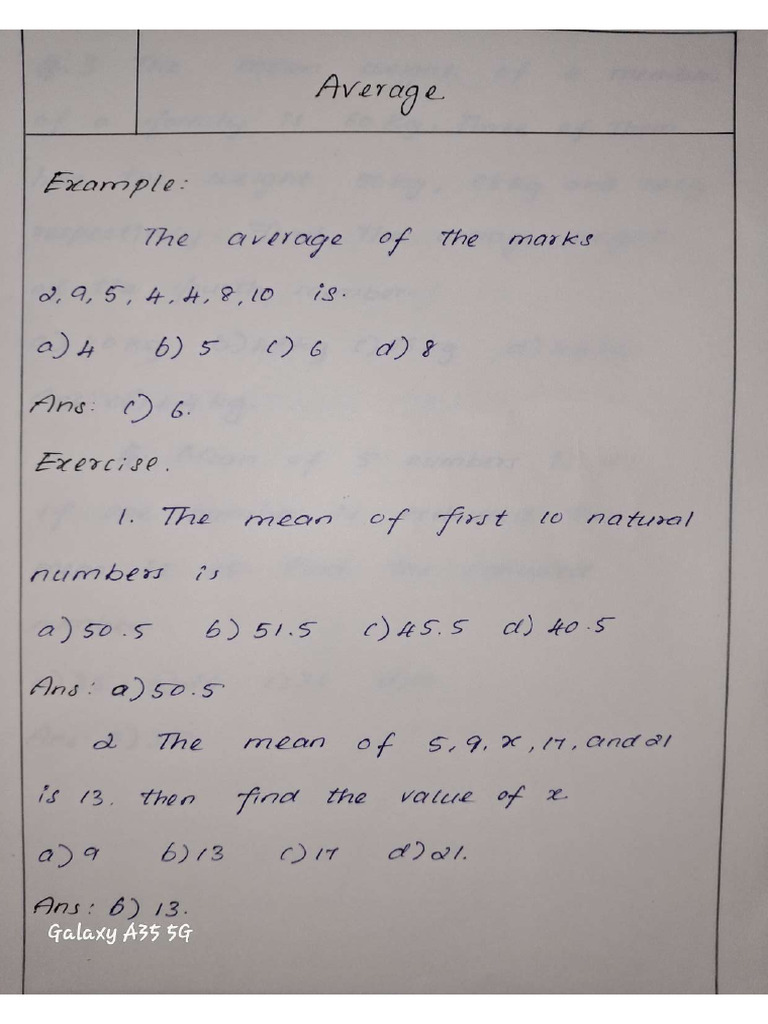 Average
Example:
The average of the marks
2, 9, 5, 4, 4, 8, 10 is.
a) 4 b) 5 c) 6 d) 8
Ans: c) 6.
Exercise.
1. The mean of first 10 natural
numbers is
a) 50.5 b) 51.5 c) 45.5 d) 40.5
Ans: a) 50.5
2 The mean of 5, 9, x, 17, and 21
is 13. then find the value of x
a) 9 b) 13 c) 17 d) 21.
Ans: b) 13.
Galaxy A35 5G